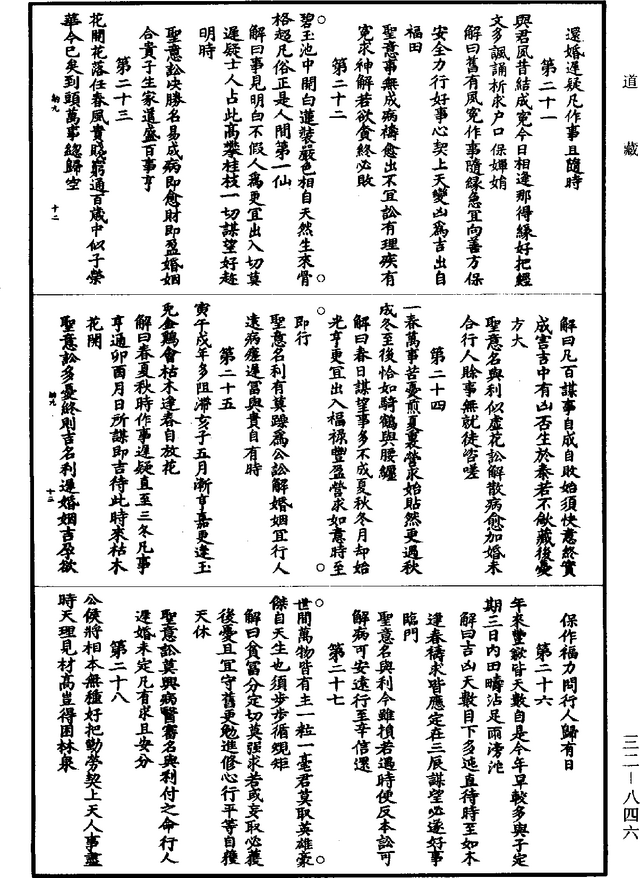 道藏
還婚遲疑凡作事且隨時
第二十一
與君夙昔結成冤今日相逢那得緣好把經
文多諷誦祈求户口保嬋娟
解曰舊有風寃作事隨緣急宜向善方保
安全力行好事心契上天變凶爲吉出自
福田
聖意事無成病禱愈出不宜訟有理疾有
寃求神解若欲貪終必敗
第二十二
碧玉池中開白蓮裝嚴色相自天然生來骨
格超凡俗正是人間第一仙
解曰事見明白不假人爲更宜出入切莫
遲疑士人占此高攀桂枝一切謀望好趂
明時
聖意訟決勝名易成病即愈財即盈婚姻
合貴子生家道盛百事亨
第二十三
花開花落任春風貴賤窮通百歲中似子榮
華今已矣到頭萬事緫歸空
十二
解曰凡百謀事自成自敗始須快意終實
成害吉中有凶否生於泰若不歛藏後憂
方大
聖意名與利似虛花訟解散病愈加婚未
合行人賒事無就徒咨嗟
第二十四
一春萬事苦憂煎夏裏營求始貼然更遇秋
成冬至後恰如騎鶴與腰纏
解曰春日謀望事多不成夏秋冬月却始
光亨更宜出入福祿豐盈營求如意時至
即行
聖意名利有莫躁爲公訟解婚姻宜行人
遠病瘥遲冨與貴自有時
第二十五
寅午戌年多阻滯亥子五月漸亨嘉更逢玉
兎金鷄會枯木逢春自放花
解曰春夏秋時作事遲疑直至三冬凡事
亨通卯酉月日所謀即吉待此時來枯木
花開
聖意訟多憂終則吉名利遲婚姻吉孕欲
十三
保作福力問行人歸有日
第二十六
年來豐歉皆天數自是今年旱較多與子定
期三日內田疇沾足雨滂沱
解曰吉凶天數目下多迍直待時至如木
逢春禱求皆應定在三辰謀望必遂好事
臨門
聖意名與利今雖損若遇時便反本訟可
解病可安遠行至辛信還
第二十七
世間萬物皆有主一粒一毫君莫取英雄豪
傑自天生也須步步循䂓矩
解曰貧冨分定切莫强求若或妄取必𫉬
後憂且宜守舊更勉進修心行平等自獲
天休
聖意訟莫興病醫審名與利付之命行人
遲婚未定凡有求且安分
第二十八
公侯將相本無種好把勤勞契上天人事盡
時天理見材高豈得困林泉
三二—八四六